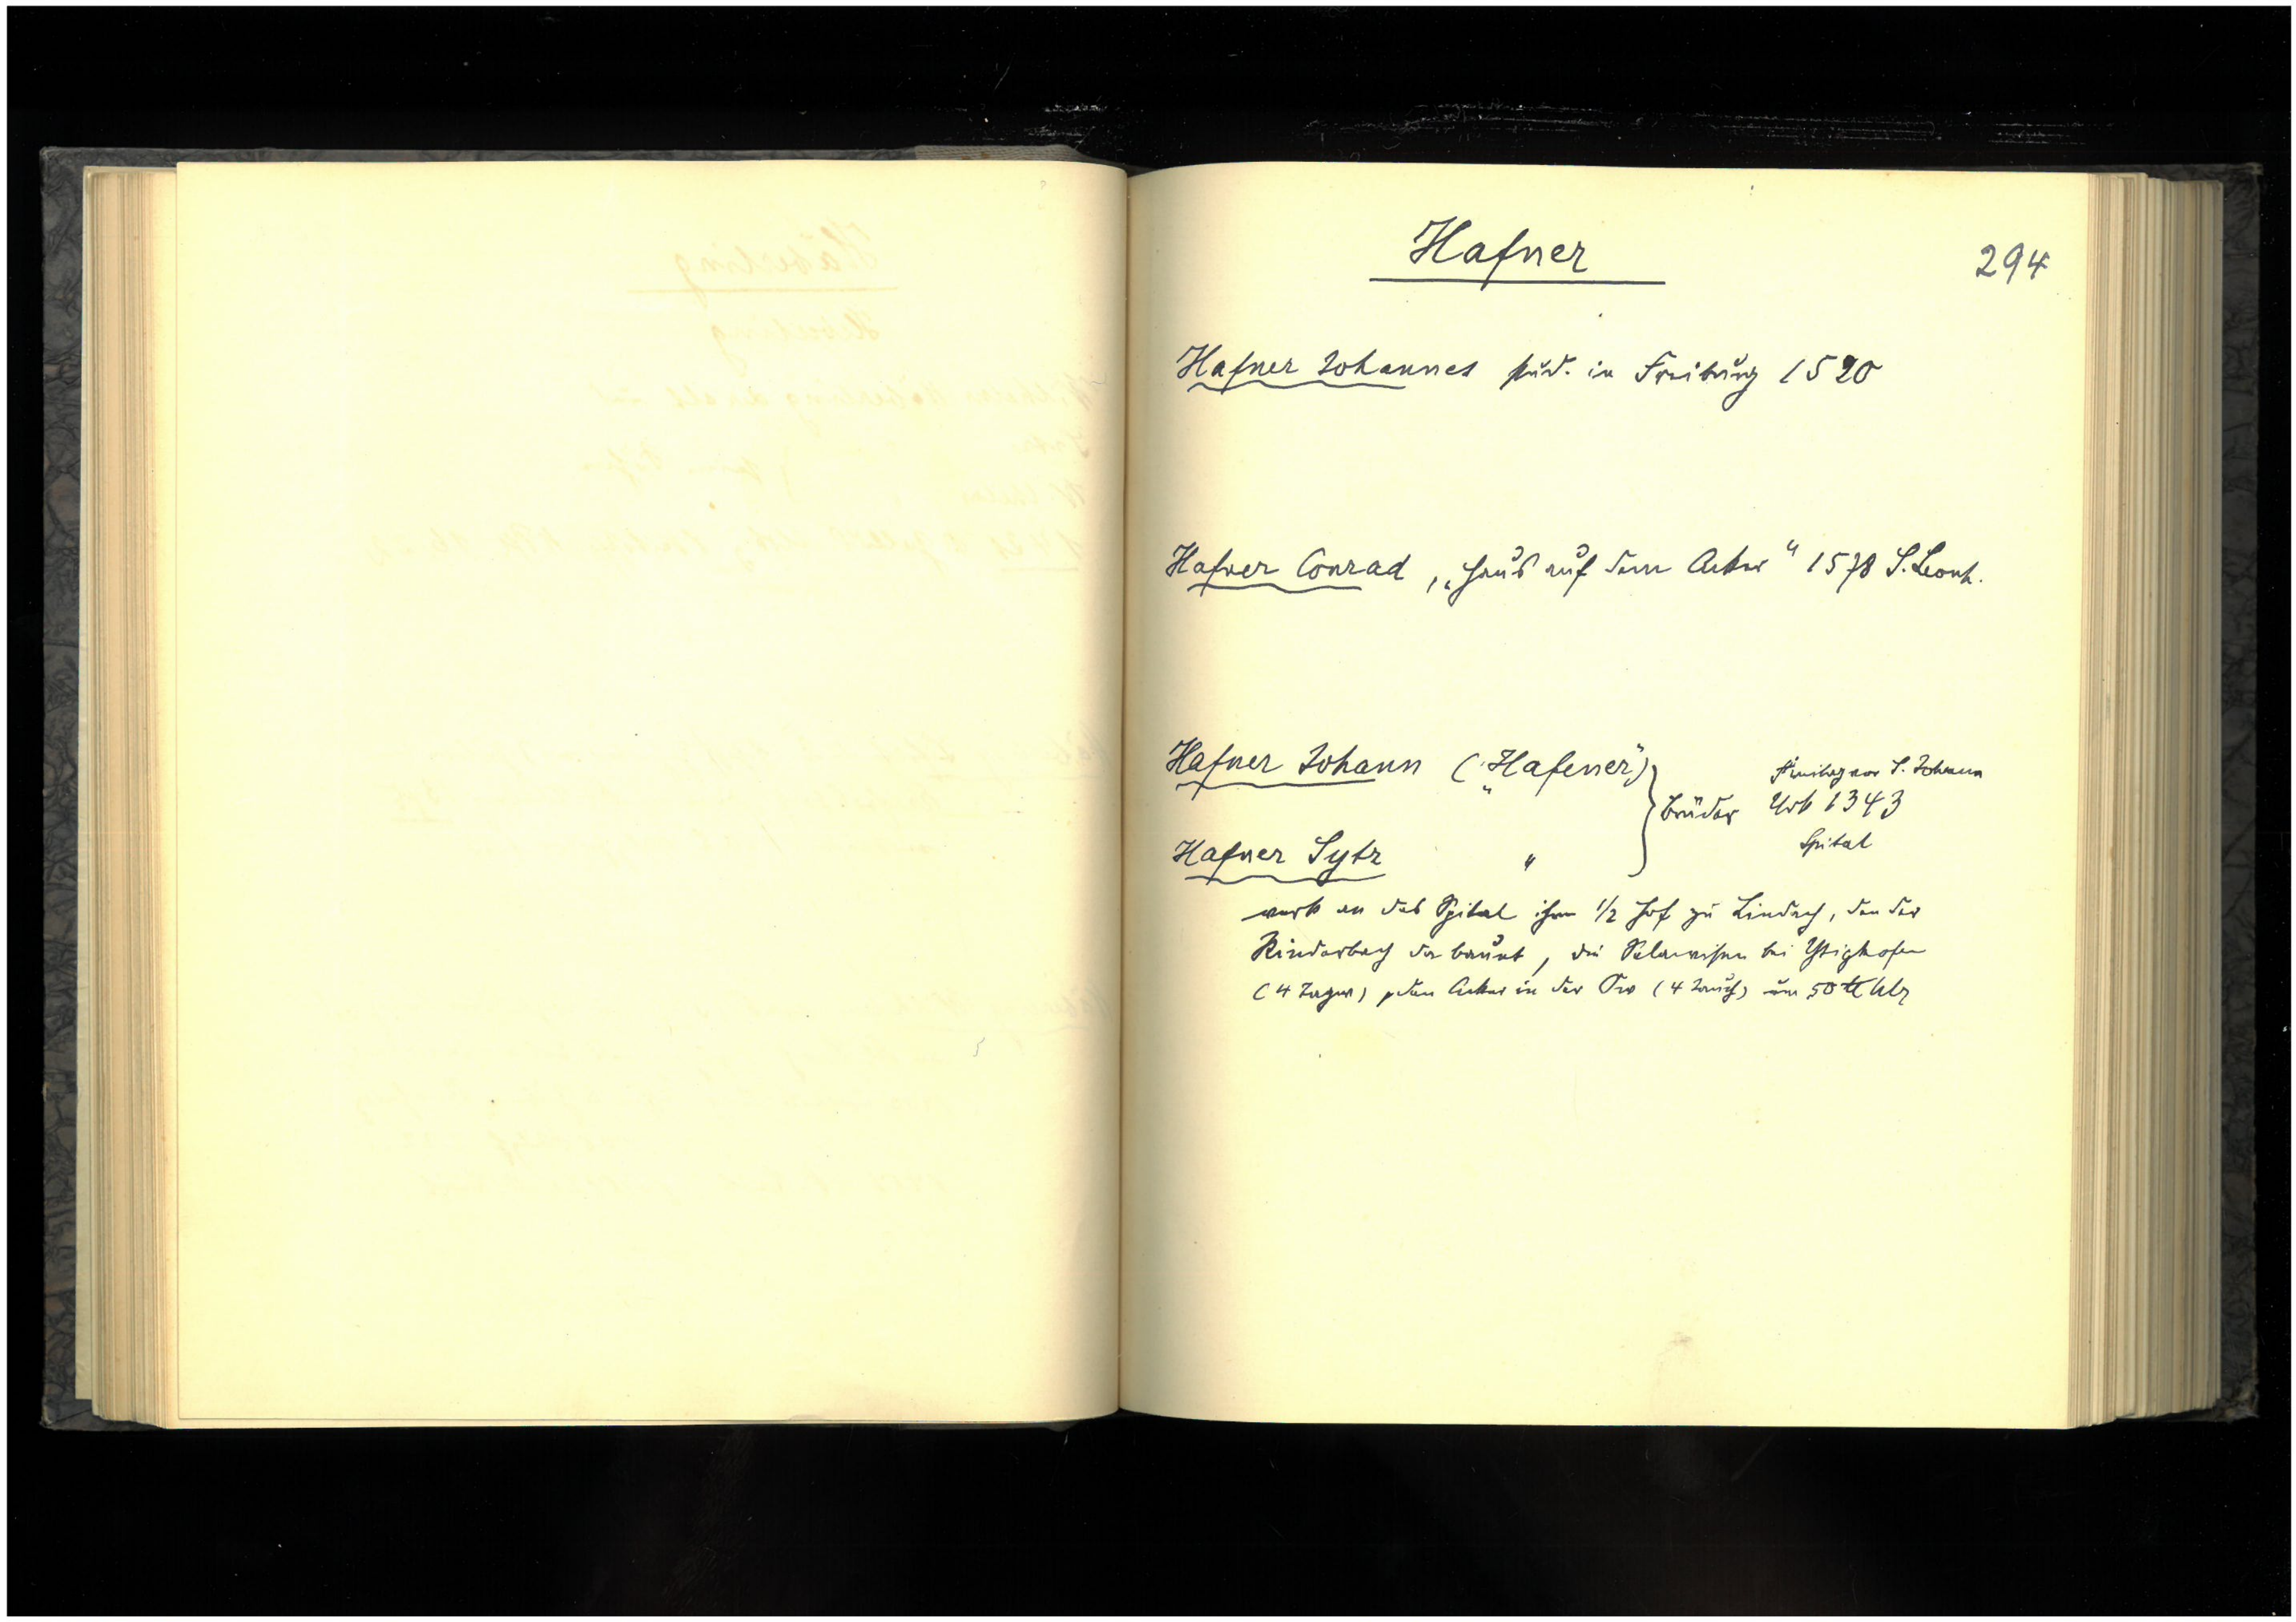 Hafner
294
Hafner Johannes stud. in Freiburg 1520
Hafner Conrad, „Haus auf dem Acker“ 1578 S. Leonh.
Hafner Johann („Hafener“)
Freitag vor S. Johann
Brüder Urk 1343
Spital
Hafner Sytz "
verk an das Spital ihren 1/2 Hof zu Lindach, den der
Rinderbach da baut, die bei Ysighofen
(4 Tagw) den Acker in der (4 Jauch) um 50 ℔ hlr